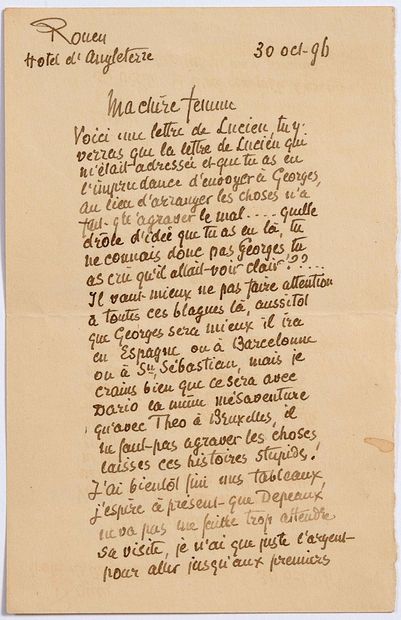 Rouen
Hotel d'Angleterre
30 oct-96
Ma chère femme
Voici une lettre de Lucien, tu y
verras que la lettre de Lucien qui
m'était adressée et que tu as eu
l'imprudance d'envoyer à Georges,
au lieu d'arranger les choses n'a
fait qu'agraver le mal.... quelle
drôle d'idée que tu as eu là, tu
ne connais donc pas Georges tu
as crû qu'il allait voir clair!?....
Il vaut mieux ne pas faire attention
à toutes ces blagues là, aussitôt
que Georges sera mieux il ira
en Espagne ou à Barcelonne
ou à Sn Sébastian, mais je
crains bien que ce sera avec
Dario la même mésaventure
qu'avec Theo à Bruxelles, il
ne faut pas agraver les choses
laisses ces histoires stupids!
J'ai bientôt fini mes tableaux,
j'espère à présent que Depeaux
ne va pas me faire trop attendre
sa visite, je n'ai que juste l'argent
pour aller jusqu'aux premiers